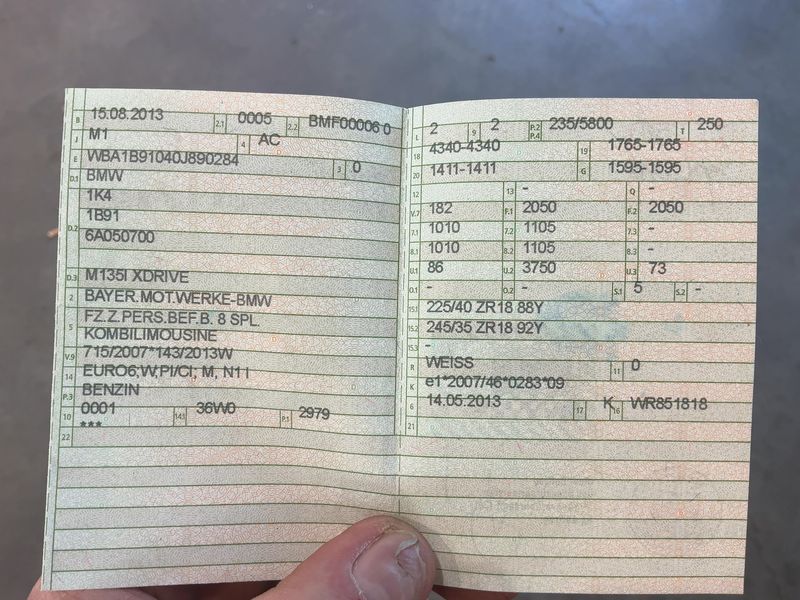 B 15.08.2013 2.1 0005 2.2 BMF00006 0
J M1 4 AC
E WBA1B91040J890284 3 0
D.1 BMW
1K4
D.2 1B91
6A050700
D.3 M135I XDRIVE
2 BAYER.MOT.WERKE-BMW
5 FZ.Z.PERS.BEF.B. 8 SPL.
KOMBILIMOUSINE
V.9 715/2007*143/2013W
14 EURO6;W;PI/CI; M, N1 I
P.3 BENZIN
10 0001 14.1 36W0 P.1 2979
22 ***
L 2 9 2 P.2 P.4 235/5800 T 250
18 4340-4340 19 1765-1765
20 1411-1411 G 1595-1595
12 13 - Q -
V.7 182 F.1 2050 F.2 2050
7.1 1010 7.2 1105 7.3 -
8.1 1010 8.2 1105 8.3 -
U.1 86 U.2 3750 U.3 73
O.1 - O.2 - S.1 5 S.2 -
15.1 225/40 ZR18 88Y
15.2 245/35 ZR18 92Y
15.3 -
R WEISS 11 0
K e1*2007/46*0283*09
6 14.05.2013 17 K 16 WR851818
21